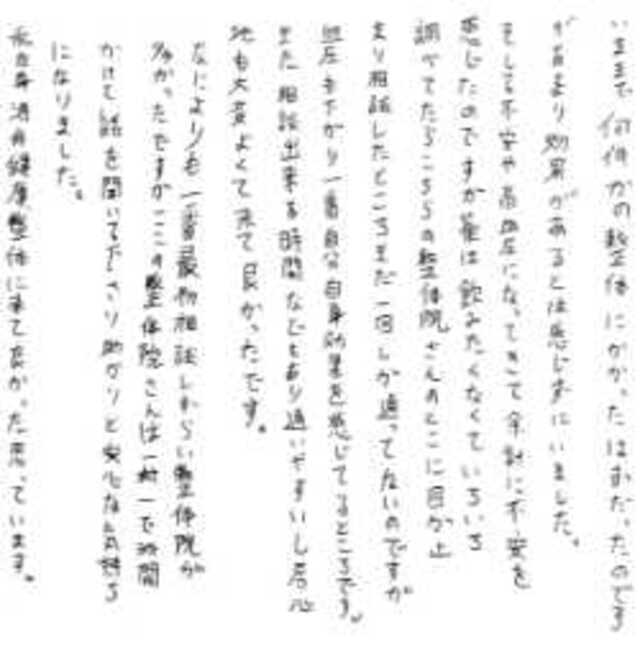 いままで何件かの整体にかかったはおだったのです
があまり効果があるとは感じずにいました。
そして不安や高血圧になってきて余計に不安を
感じたのですが薬は飲みたくなくていろいろ
調べてたらこちらの整体院さんのとこに目が止
まり相談したところまだ一回しか通ってないのですが
血圧も下がり一番自分自身効果を感じてるところです。
また相談出来る時間などもあり通いやすいし居心
地も大変よくて来て良かったです。
なによりも一番最初相談しずらい整体院が
多かったですがここの整体院さんは一対一で時間
かけて話を聞いて下さり助かりと安心な気持ち
になりました。
私自身 健康整体に来て良かった思っています。